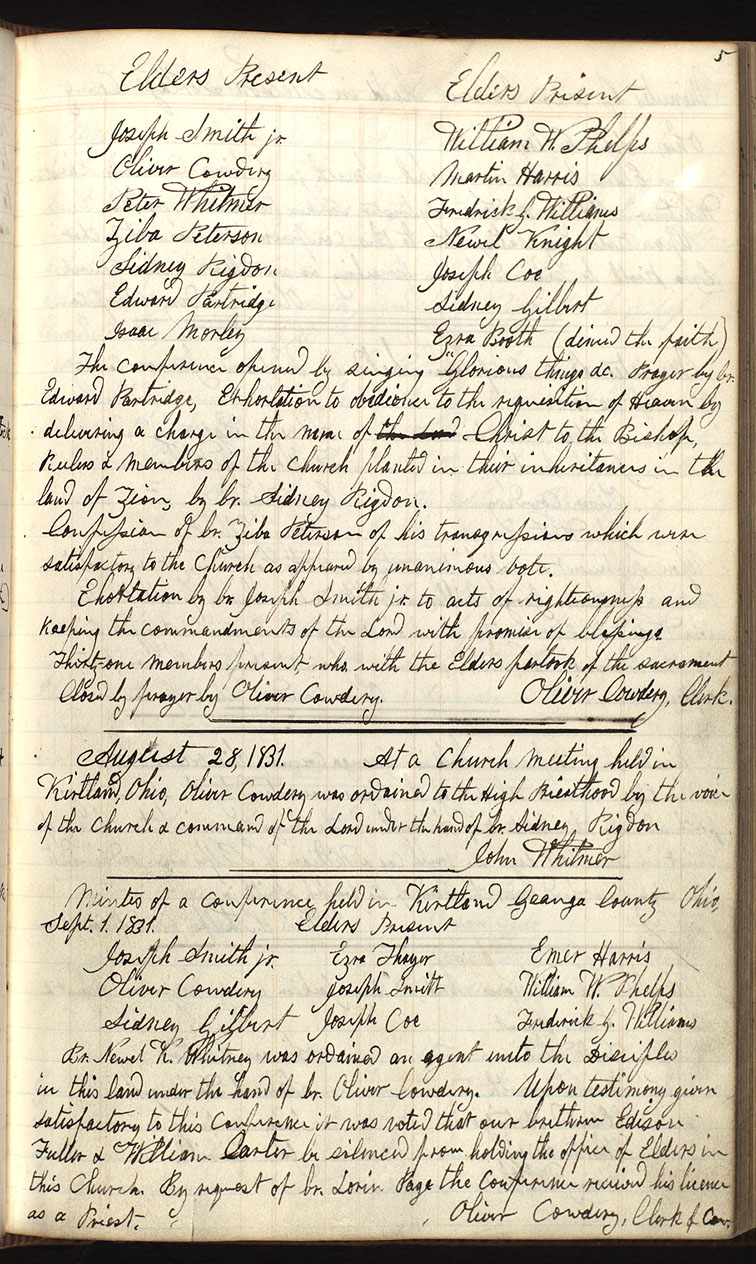 5
Elders Present Elders Present
Joseph Smith jr. William W. Phelps
Oliver Cowdery Martin Harris
Peter Whitmer Fredrick G. Williams
Ziba Peterson Newel Knight
Sidney Rigdon Joseph Coe
Edward Partridge Sidney Gilbert
Isaac Morley Ezra Booth (denied the faith)
The conference opened by singing "Glorious things &c. Prayer by br.
Edward Partridge, Exhortation to obedience to the requisition of Heaven by
delivering a charge in the name of the Lord Christ to the Bishop,
Rulers & members of the church planted in their inheritances in the
land of Zion, by br. Sidney Rigdon.
Confession of br. Ziba Peterson of his transgressions which were
satisfactory to the Church as appeared by unanimous vote.
Exhortation by br. Joseph Smith jr. to acts of righteousness and
keeping the commandments of the Lord with promise of blessings
Thirty-one members present who with the Elders partook of the sacrament
Closed by prayer by Oliver Cowdery. Oliver Cowdery, Clerk.
August 28, 1831. At a Church meeting held in
Kirtland, Ohio, Oliver Cowdery was ordained to the High Priesthood by the voice
of the Church & command of the Lord under the hand of br. Sidney Rigdon
John Whitmer
Mintes of a conference held in Kirtland Geauga County Ohio,
Sept. 1. 1831. Elders Present
Joseph Smith jr. Ezra Thayer Emer Harris
Oliver Cowdery Joseph Smith William W. Phelps
Sidney Gilbert Joseph Coe Frederick G. Williams
Br. Newel K. Whitney was ordained an agent unto the Disciples
in this land under the hand of br. Oliver Cowdery. Upon testimony given
satisfactory to this Conference it was voted that our brethren Edison
Fuller & William Carter be silenced from holding the office of Elders in
this Church. By request of br. Lorin Page the Conference received his licence
as a Priest. Oliver Cowdery, Clerk of Con.